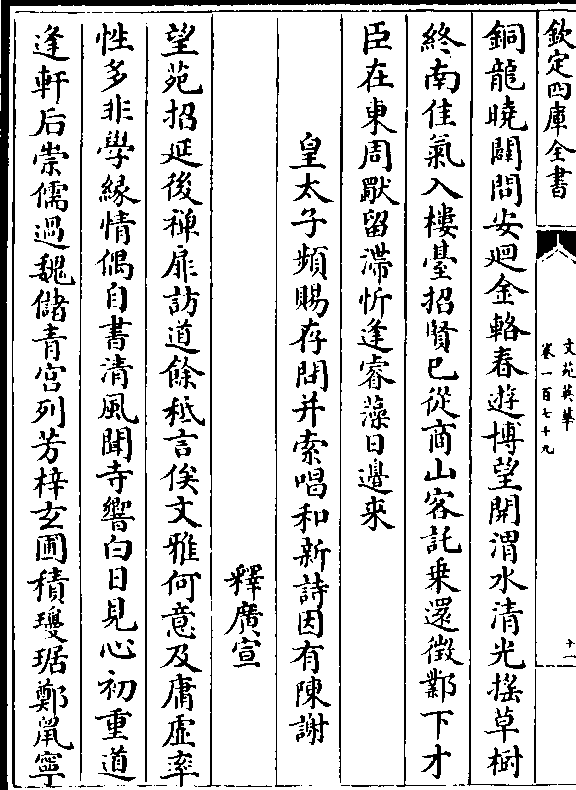 欽定四庫全書
文苑英華
卷一百七十九
十一
銅龍曉闢問安迴金輅春遊博望開渭水清光摇草樹
終南佳氣入樓臺招賢已從商山客託乗還徴鄴下才
臣在東周獸留滯忻逢睿藻日邉来
皇太子頻賜存問并索唱和新詩因有陳謝
釋廣宣
望苑招延後禪扉訪道餘秪言俟文雅何意及庸虚率
性多非學緣情偶自書清風聞寺響白日見心初重道
逢軒后崇儒過魏儲青宫列芳梓玄圃積瓊琚鄭鼠寧